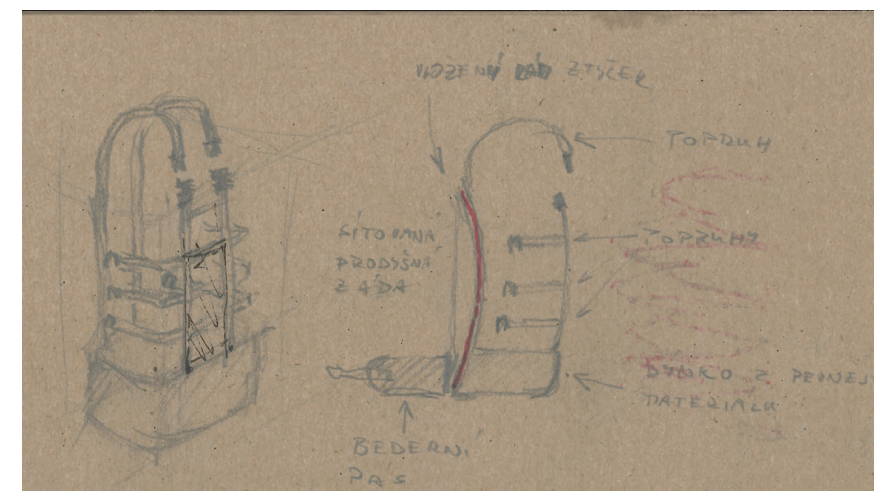 ZTYČEK
POPRUH
SÍŤOVANÁ
PRODYŠNÁ
ZÁDA
POPRUHY
DÝNKO Z PEVNEJ
MATERIALU
BEDERNÍ
PÁS